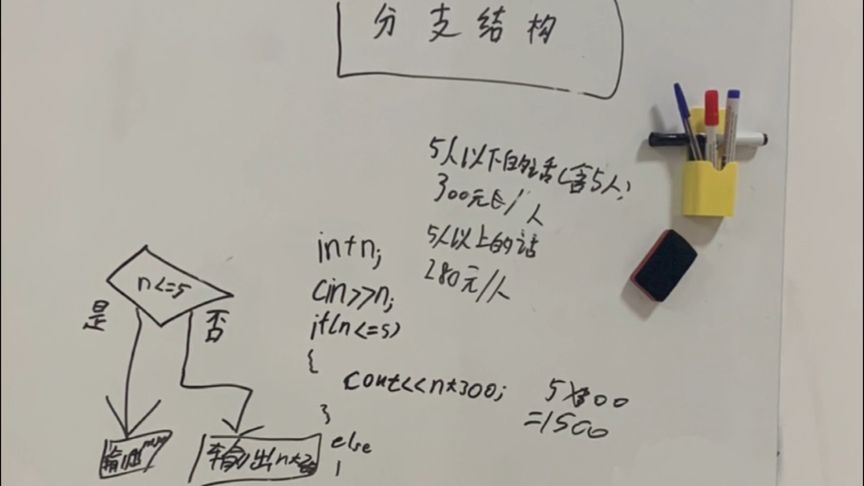 分支结构
5人以下的话(含5人)
300元/人
5人以上的话
280元/人
int n;
cin>>n;
if(n<=5)
{
cout<<n*300;
}
else
5×300
=1500
n<=5
是
否
输出
输出n*